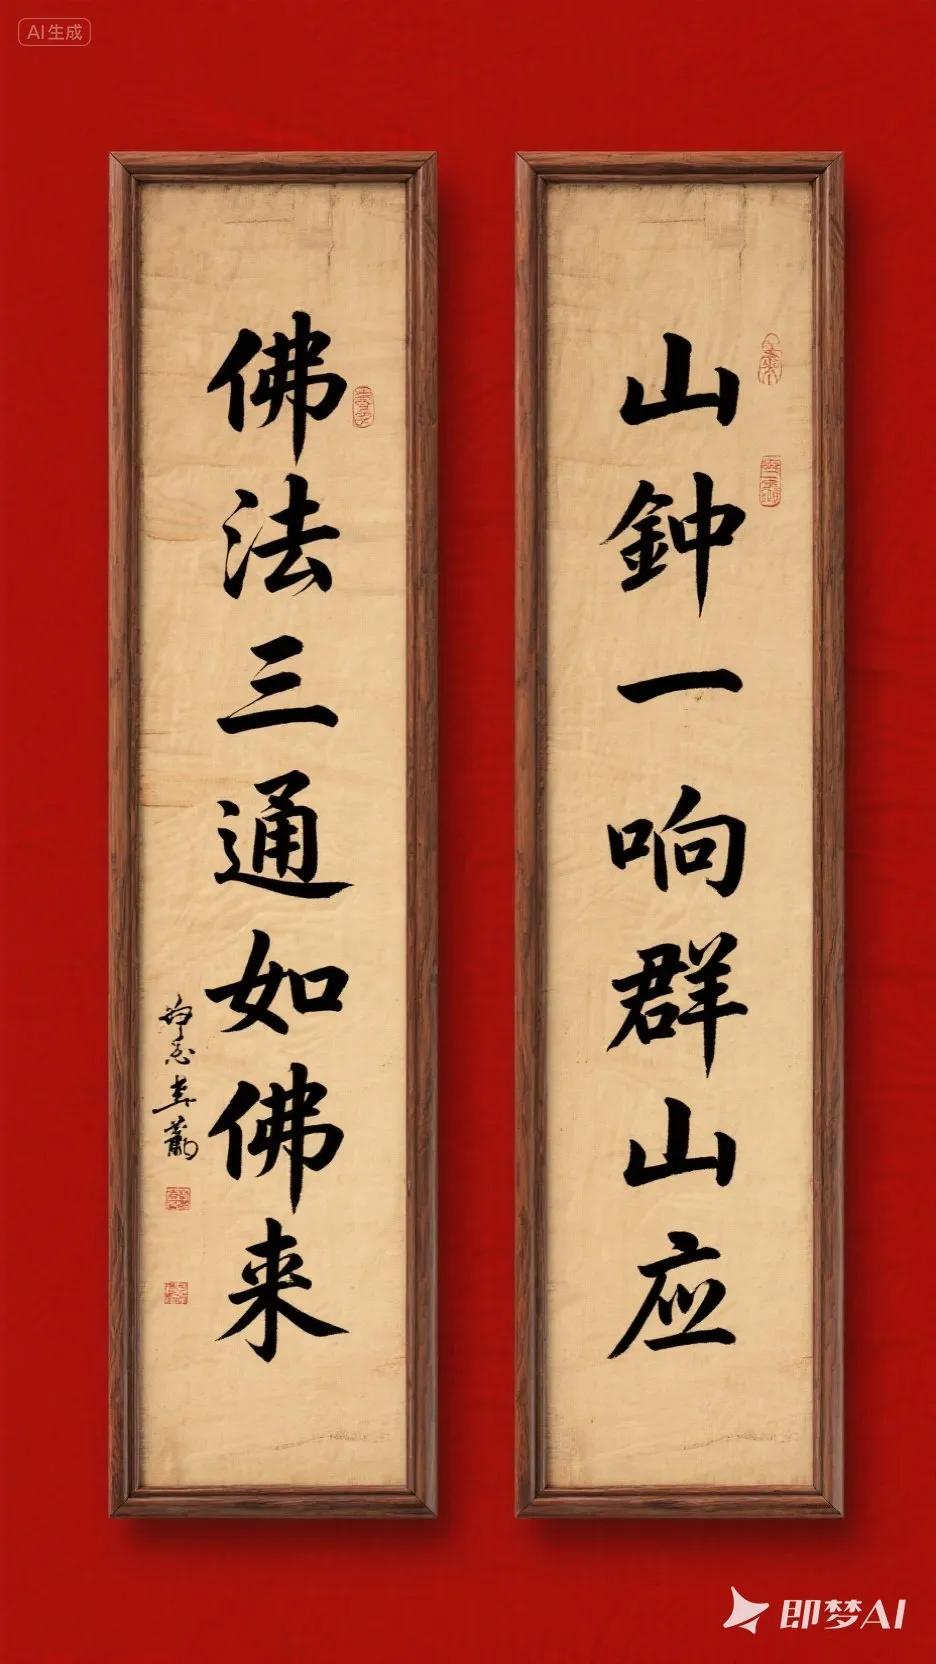 AI生成
山鈡一响群山应
佛法三通如佛来
即梦AI